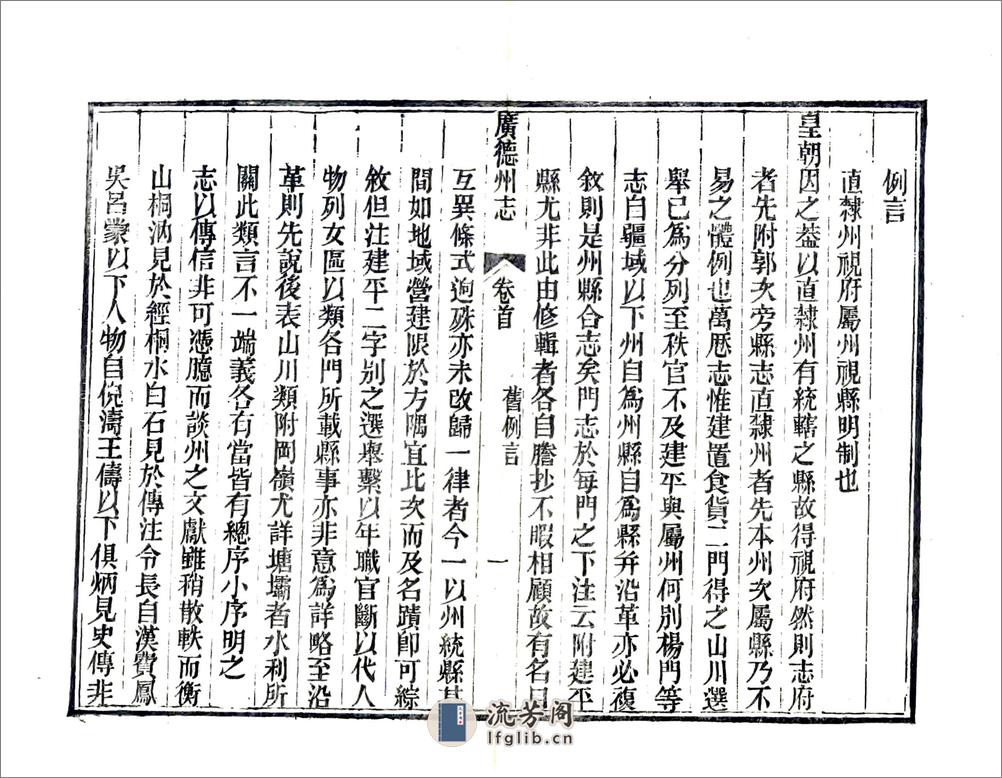 例言
直隸州視府屬州視縣明制也
皇朝因之葢以直隸州有統轄之縣故得視府然則志府
者先附郭次旁縣志直隸州者先本州次屬縣乃不
易之體例也萬厯志惟建置食貨二門得之山川選
舉已爲分列至秩官不及建平與屬州何別楊門等
志自疆域以下州自爲州縣自爲縣弁沿革亦必複
敘則是州縣合志矣門志於每門之下注云附建平
縣尤非此由修輯者各自謄抄不暇相顧故有名目
廣德州志
卷首
舊例言
一
互異條式逈殊亦未改歸一律者今一以州統縣其
間如地域營建限於方隅宜比次而及名蹟卽可綜
敘但注建平二字别之選舉繫以年職官斷以代人
物列女區以類各門所載縣事亦非意爲詳略至沿
革則先說後表山川類附岡嶺尤詳塘壩者水利所
關此類言不一端義各有當皆有總序小序明之
志以傳信非可憑臆而談州之文獻雖稍散軼而衡
山桐汭見於經桐水白石見於傳注令長自漢費鳳
吳呂蒙以下人物自倪濤王儔以下俱炳見史傳非
流芳阁
lfglib.cn